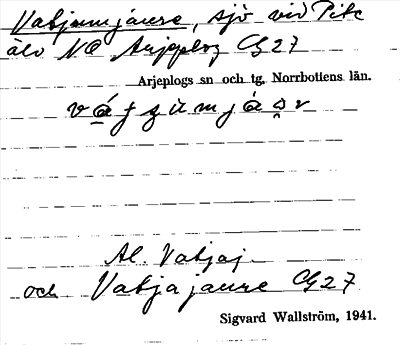 Vatjaumjaure, sjö vid Pite
älv NO Arjeplog Cg 27
Arjeplogs sn och tg, Norrbottens län.
Al. Vatjaj-
och Vatjajaure Cg 27
Sigvard Wallström, 1941.